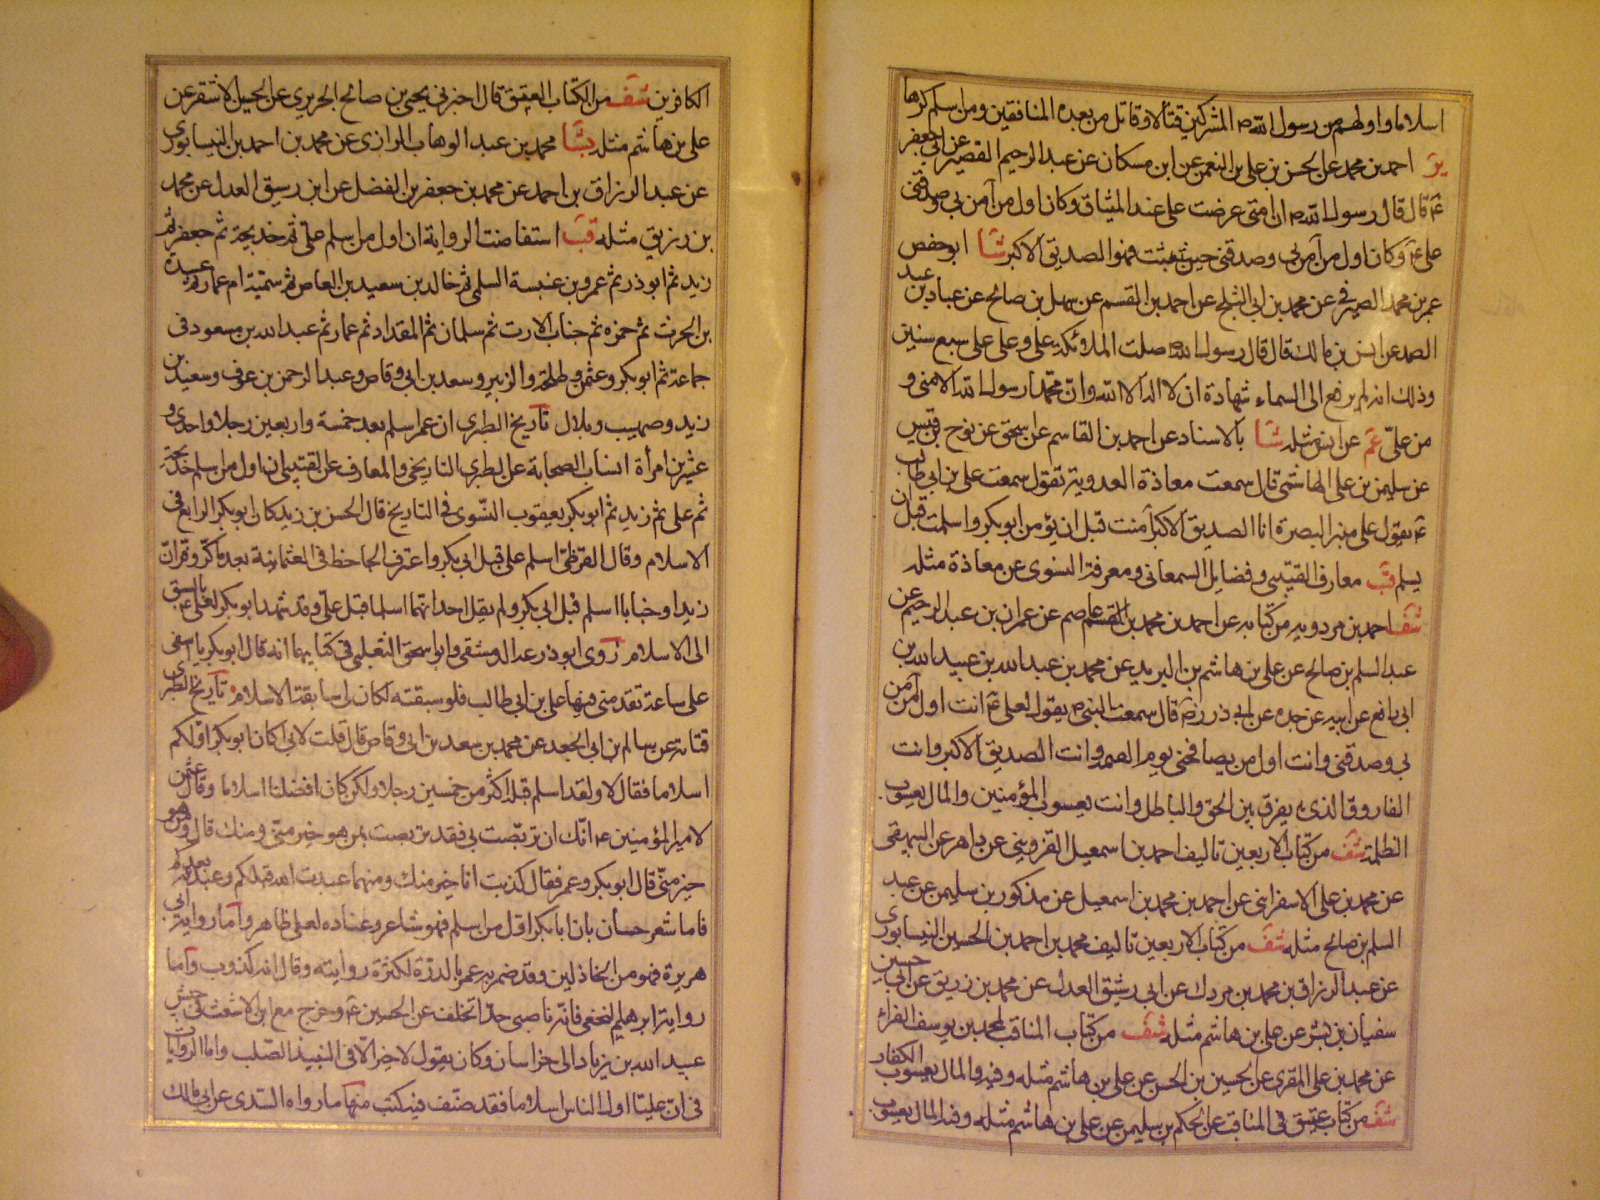 اسلاما واولهم من رسول الله ص المشركين قتالا وقاتل من بعده المنافقين ومن اسلم كرها
ير احمد بن محمد عن الحسن بن علي بن النعمن عن ابن مسكان عن عبد الرحيم القصير عن ابي جعفر
ع قال قال رسول الله ص ان امتي عرضت علي عند الميثاق وكان اول من آمن بي وصدقني
علي ع وكان اول من آمن بي وصدقني حيث بعثت فهو الصديق الاكبر شا ابو حفص
عمر بن محمد الصيرفي عن محمد بن ابي الثلج عن احمد بن القسم عن سهل بن صالح عن عباد بن عبد
الصمد عن انس بن مالك قال قال رسول الله ص صلت الملائكة علي وعلى علي سبع سنين
وذلك انه لم يرفع الى السماء شهادة ان لا اله الا الله وان محمدا رسول الله الا مني و
من علي عم عن انس مثله شا بالاسناد عن احمد بن القاسم عن اسحق عن نوح بن قيس
عن سليمن بن علي الهاشمي قال سمعت معاذة العدوية تقول سمعت علي بن ابي طالب
ع يقول على منبر البصرة انا الصديق الاكبر آمنت قبل ان يؤمن ابو بكر واسلمت قبل ان
يسلم قب معارف القتيبي وفضايل السمعاني ومعرفة النسوي عن معاذة مثله
شف احمد بن مردويه من كتابه عن احمد بن محمد بن عاصم عن عمران بن عبد الرحيم عن
عبد السلم بن صالح عن علي بن هاشم بن البريد عن محمد بن عبد الله بن عبيد الله بن
ابي رافع عن ابيه عن جده عن ابي ذر رض قال سمعت النبي ص يقول لعلي ع انت اول من آمن
بي وصدقني وانت اول من يصافحني يوم القيمة وانت الصديق الاكبر وانت
الفاروق الذي يفرق بين الحق والباطل وانت يعسوب المؤمنين والمال يعسوب
الظلمة شف من كتاب الاربعين تاليف احمد بن اسمعيل القزويني عن زاهر عن البيهقي
عن محمد بن علي الاسفرايني عن احمد بن محمد بن اسمعيل عن مذكور بن سليمن عن عبد
السلم بن صالح مثله شف من كتاب الاربعين تاليف محمد بن احمد بن الحسين النيسابوري
عن عبد الرزاق بن محمد بن مردك عن ابي رشيق العدل عن محمد بن زريق عن ابي حسين
سفيان بن بشر عن علي بن هاشم مثله شف من كتاب المناقب لمحمد بن يوسف الفراء
عن محمد بن علي المقري عن الحسين بن الحسن عن علي بن هاشم مثله وفيه والمال يعسوب الكفار
شف من كتاب عتيق في المناقب عن الحكم بن سليمن عن علي بن هاشم مثله وفيه المال يعسوب
الكافرين شف من الكتاب العتيق قال اخبرني يحيى بن صالح الجريري عن الحسين الاشقر عن
علي بن هاشم مثله بشا محمد بن عبد الوهاب الرازي عن محمد بن احمد بن النيسابوري
عن عبد الرزاق بن احمد عن محمد بن جعفر بن الفضل عن ابن رسيق العدل عن محمد
بن رزيق مثله قب استفاضت الرواية ان اول من اسلم علي ثم خديجة ثم جعفر ثم
زيد ثم ابو ذر ثم عمرو بن عنبسة السلمي ثم خالد بن سعيد بن العاص ثم سمية ام عمار ثم عبيدة
بن الحرث ثم حمزه ثم خباب بن الارت ثم سلمان ثم المقداد ثم عمار ثم عبد الله بن مسعود في
جماعة ثم ابو بكر وعثمن وطلحة والزبير وسعد بن ابي وقاص وعبد الرحمن بن عوف وسعيد بن
زيد وصهيب وبلال تاريخ الطبري ان عمر اسلم بعد خمسة واربعين رجلا واحدى و
عشرين امرأة انساب الصحابة عن الطبري التاريخي والمعارف عن القتيبي ان اول من اسلم خديجة
ثم علي ثم زيد ثم ابو بكر يعقوب النسوي في التاريخ قال الحسن بن زيد كان ابو بكر الرابع في
الاسلام وقال القرظي اسلم علي قبل ابي بكر واعترف الجاحظ في العثمانية بعد ما كر وفر ان
زيدا وخبابا اسلما قبل ابي بكر ولم يقل احد انهما اسلما قبل علي وقد شهد ابو بكر لعلي ع بالسبق
الى الاسلام روى ابو زرعة الدمشقي وابو اسحق الثعلبي في كتابيهما انه قال ابو بكر يا اسفى
على ساعة تقدمني فيها علي بن ابي طالب فلو سبقته لكان لي سابقة الاسلام تاريخ الطبري
قتادة عن سالم بن ابي الجعد عن محمد بن سعد بن ابي وقاص قال قلت لابي اكان ابو بكر اولكم
اسلاما فقال لا ولقد اسلم قبله اكثر من خمسين رجلا ولكن كان افضلنا اسلاما وقال عثمن
لامير المؤمنين ع انك ان تربصت بي فقد تربصت بمن هو خير مني ومنك قال ومن هو
خير مني قال ابو بكر وعمر فقال كذبت انا خير منك ومنهما عبدت الله قبلكم وعبدته بعدكم
فاما شعر حسان بان ابا بكر اول من اسلم فهو شاعر وعناده لعلي ظاهر واما رواية ابي
هريرة فهو من الخاذلين وقد ضربه عمر بالدرة لكثرة روايته وقال انه كذوب واما
رواية ابرهيم النخعي فانه ناصبي جدا تخلف عن الحسين ع وخرج مع ابن الاشعث في جيش
عبيد الله بن زياد الى خراسان وكان يقول لا خير الا في النبيذ الصلب واما الروايات
في ان عليا اول الناس اسلاما فقد صنف فيه كتب منها ما رواه السدي عن ابي مالك